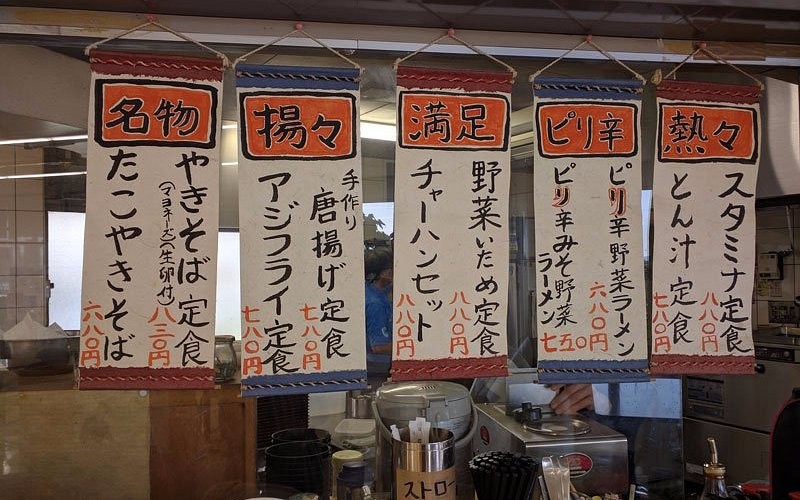 名物
やきそば定食
(マヨネーズ)(生卵付)
八三〇円
たこやきそば
六八〇円
揚々
手作り
唐揚げ定食
七八〇円
アジフライ定食
七八〇円
満足
野菜いため定食
八八〇円
チャーハンセット
八八〇円
ピリ辛
ピリ辛野菜ラーメン
六八〇円
ピリ辛みそ野菜
ラーメン
七五〇円
熱々
スタミナ定食
八八〇円
とん汁定食
七八〇円
ストロー